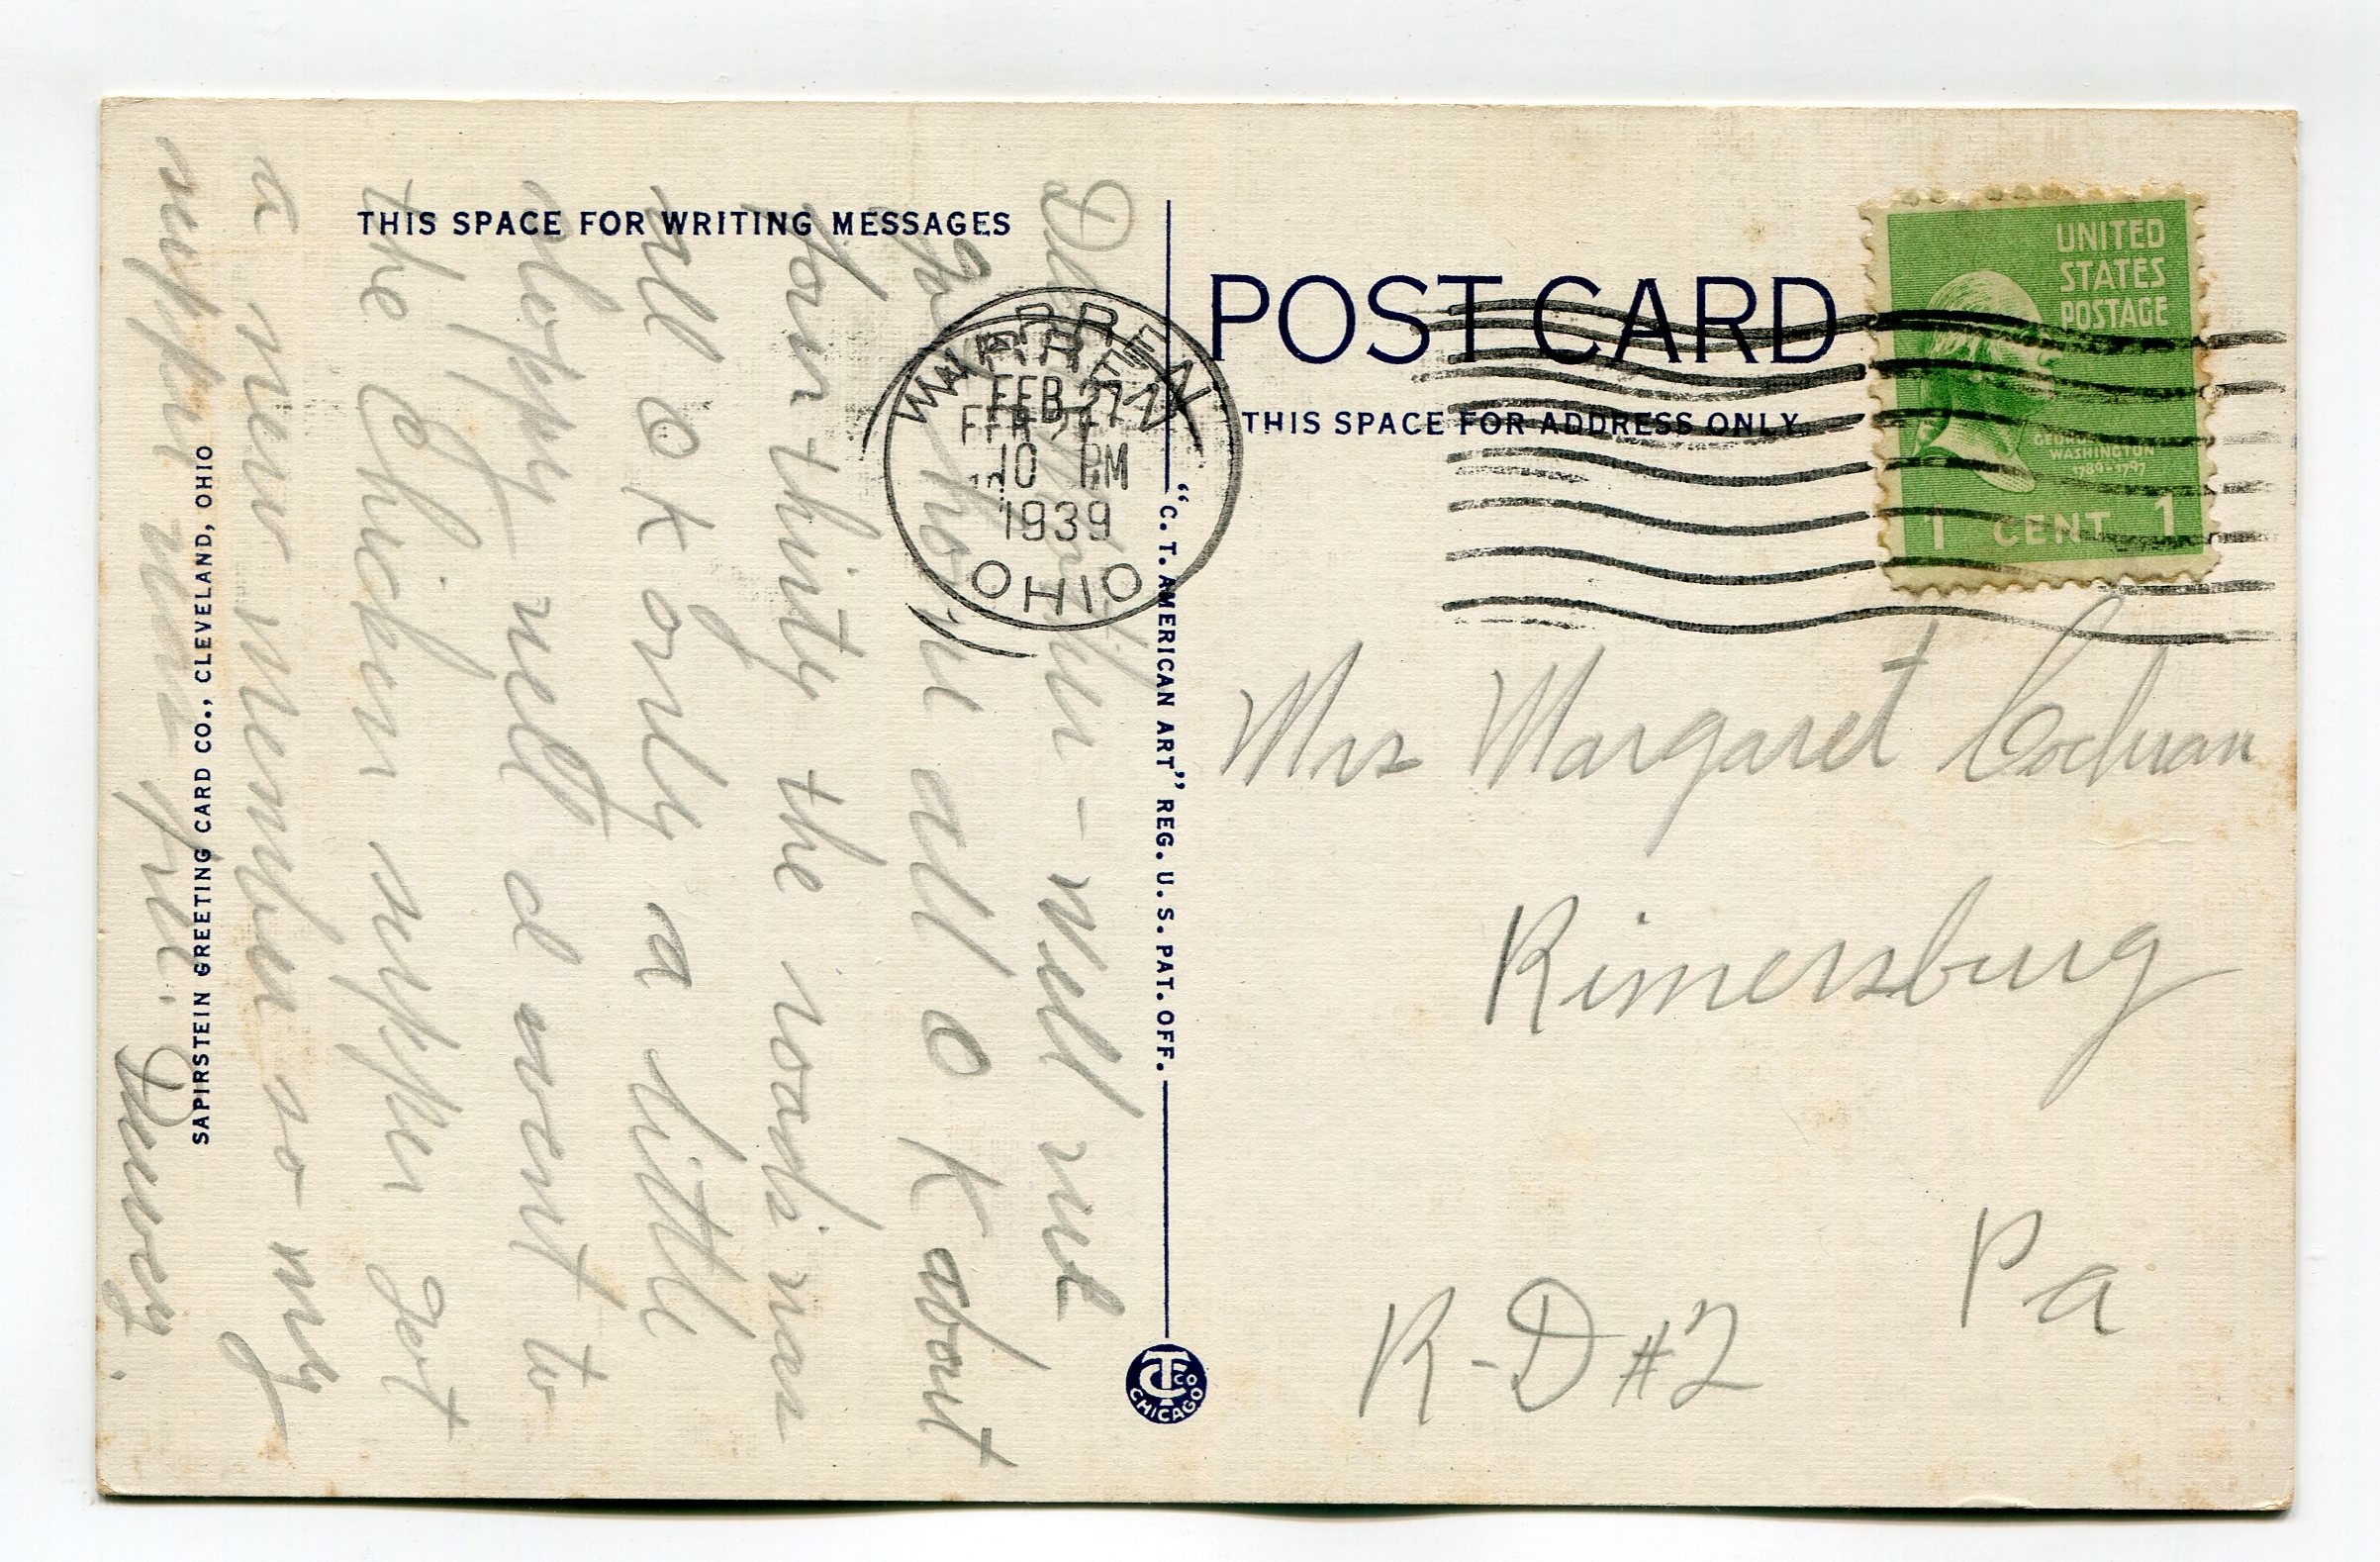 THIS SPACE FOR WRITING MESSAGES
Dear Mother - Well we
got home all O K about
four thirty the roads was
all O K only a little
sloppy well I went to
the Chicken supper got
a new member so my
supper was free.
Dewey.
SAPIRSTEIN GREETING CARD CO., CLEVELAND, OHIO
"C. T. AMERICAN ART" REG. U. S. PAT. OFF.
CT CO CHICAGO
WARREN
FEB 27
10 PM
1939
OHIO
POST CARD
THIS SPACE FOR ADDRESS ONLY
UNITED
STATES
POSTAGE
GEORGE
WASHINGTON
1789-1797
1 CENT 1
Mrs Margaret Cochran
Rimersburg
Pa
R-D #2